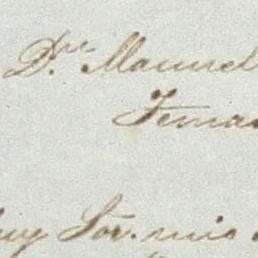 Dn. Manuel
Fernan
uy Sor. mio